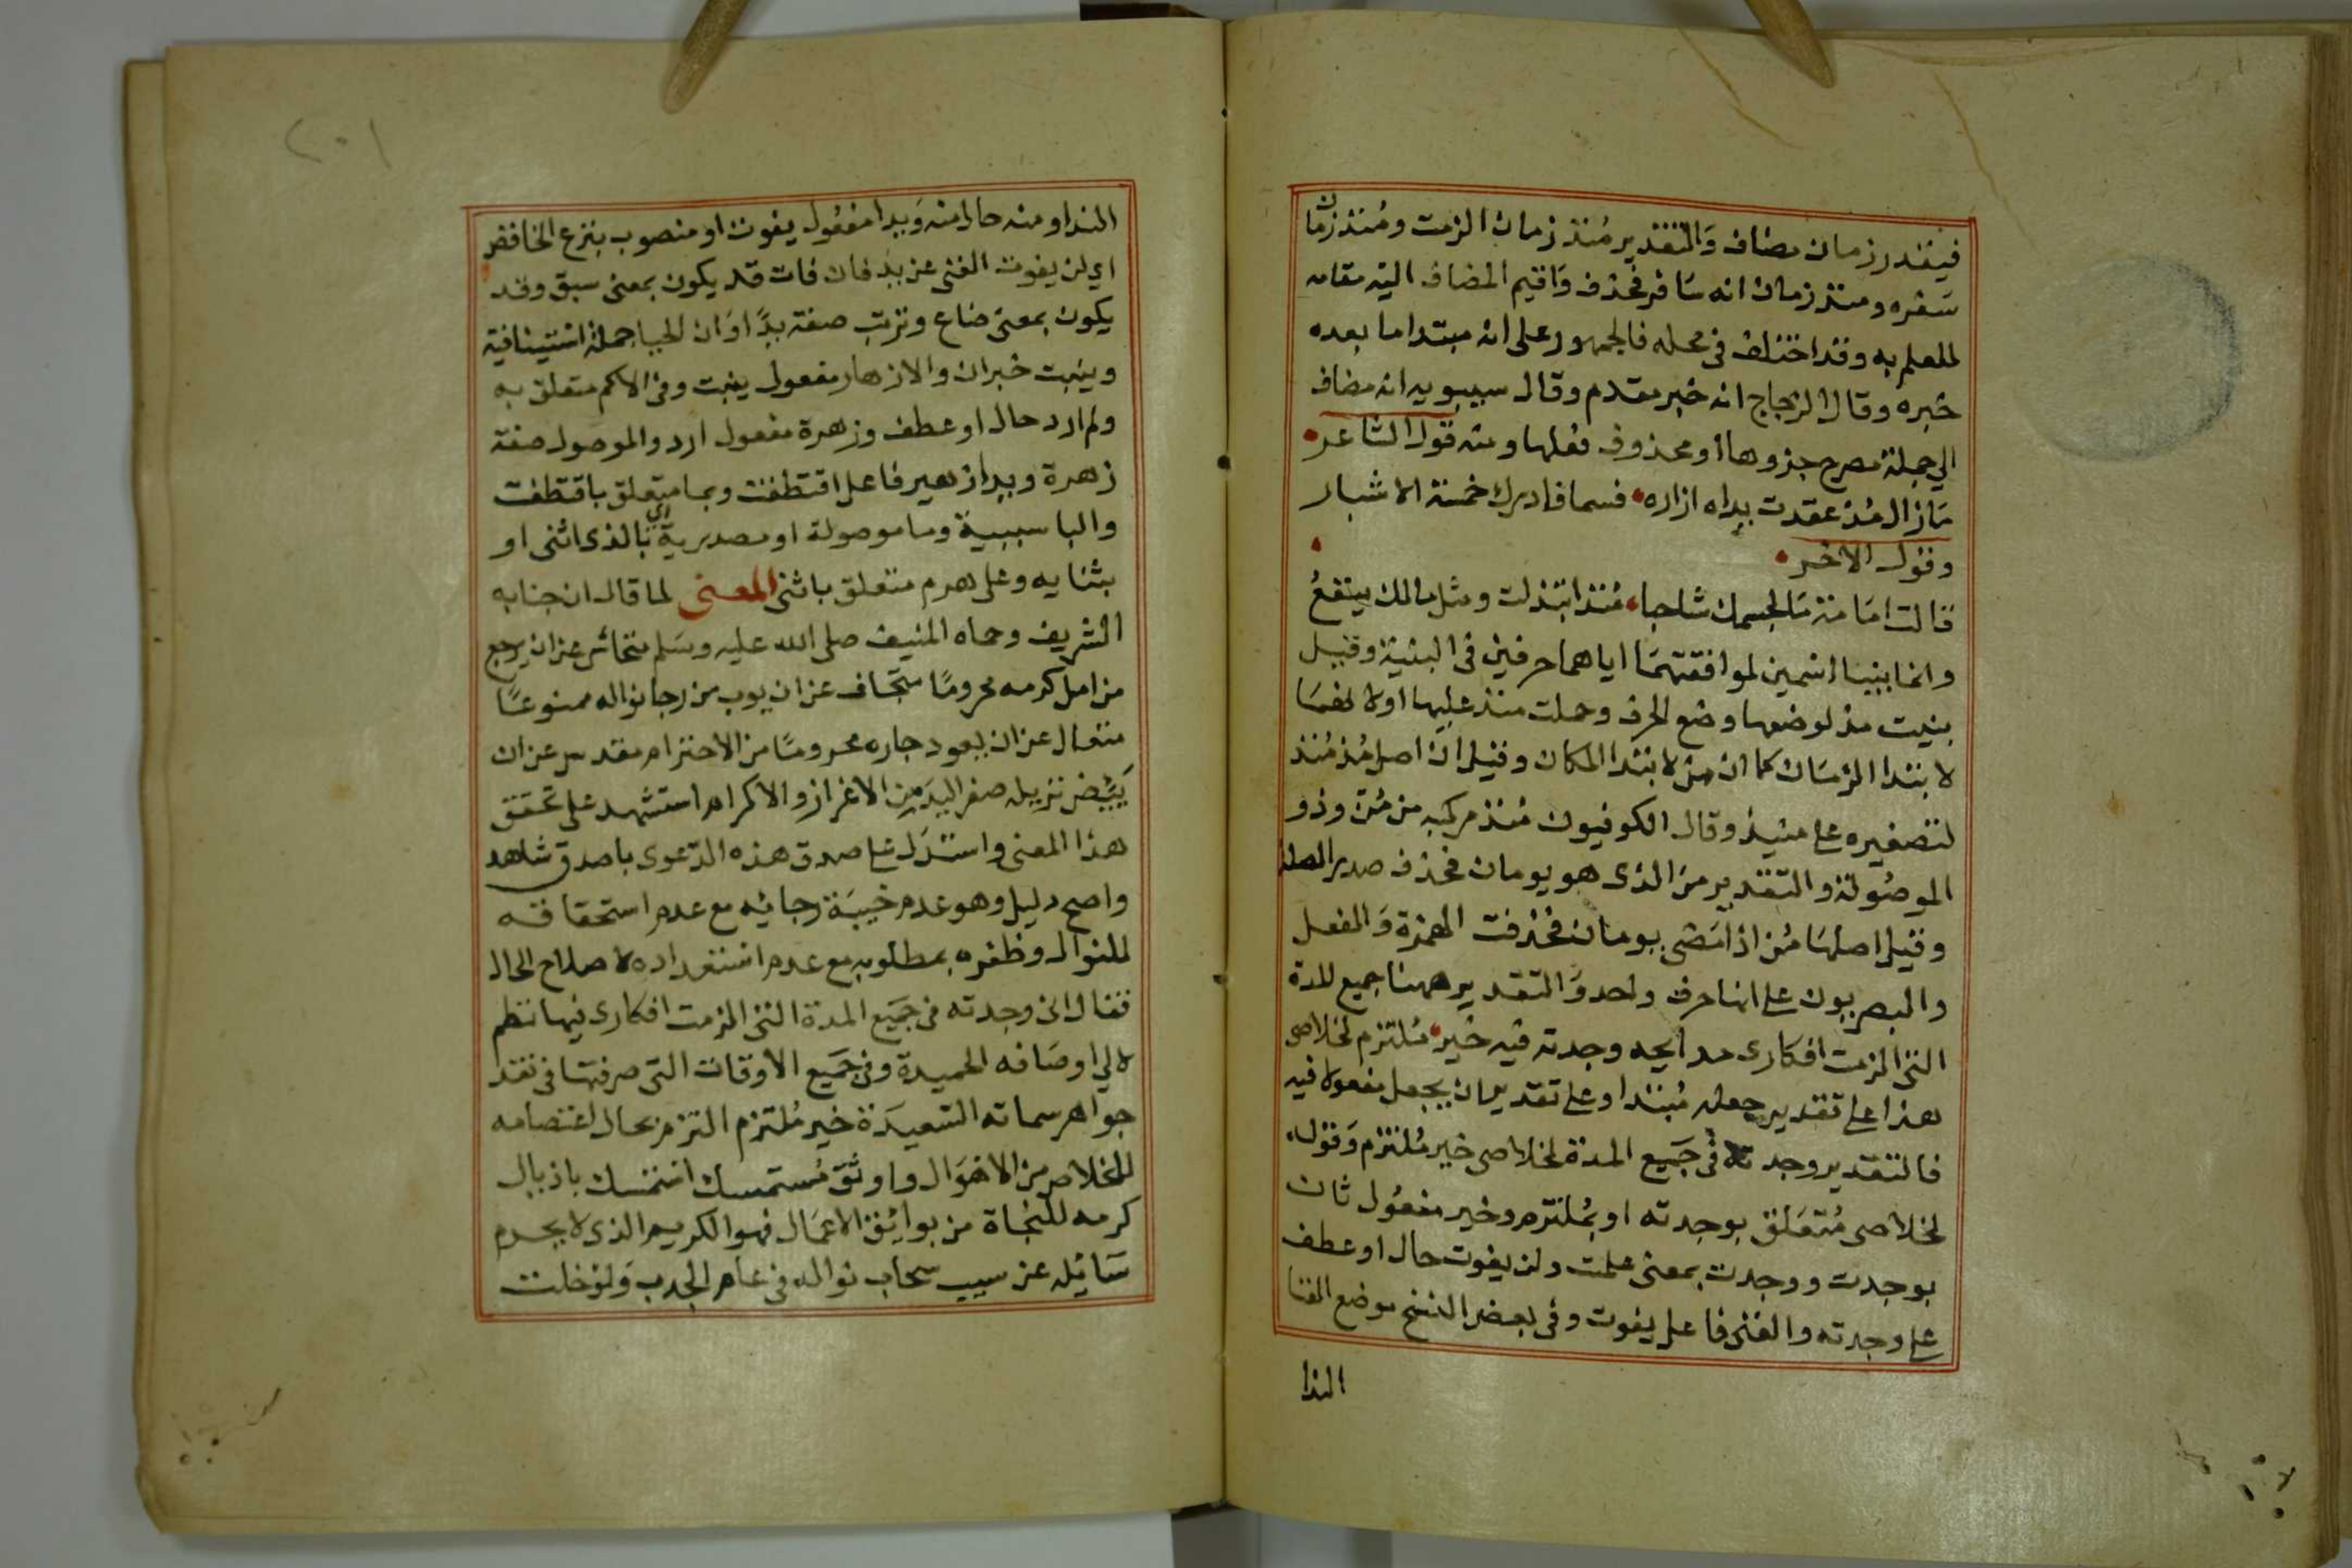 فيقدر زمان مضاف وَالتقدير مُنذ زمان الزمت ومُنذ زمان
سَفره ومنذ زمان انه سَافر فحُذف وَاقيم المضاف اليه مقامه
للعلم به وقد اختلف في محله فالجمهور على انه مبتدا ما بعده
خبره وقال الزجاج انه خبر مقدم وقال سيبويه انه مضاف
الي جملة مصرح جزوها او محذوف فعلها ومنه قول الشاعر
مَازال مُذ عقدت يداه ازاره فسما فادرك خمسة الاشبار
وقول الاخر
قالت امَامة مَا لجسمك شاحبا مُنذ ابتذلت ومثل مالك ينفعُ
وانما بنيا اسمين لموافقتهمَا اياهما حرفين في البنية وقيل
بنيت مذ لوضعها وضع الحرف وحملت منذ عليها اولا نهما
لا بتدا الزمَان كما ان من لا بتدا المكان وقيل ان اصل مُذ مُنذ
لتصغيره على منيذ وقال الكوفيون مُنذ مركبه من مُن وذو
الموصُولة والتقدير من الذى هو يومان فحذف صدر الصلة
وقيل اصلهَا مُن اذ امَضى يومان فحُذفت الهمزة وَالفعل
والبصريون على انها حرف واحد وَالتقدير ههنا جميع المدة
التى الزمت افكارى مدايحه وجدته فيه خير مُلتزم لخلاصى
هذا على تقدير جعله مُبتدا وعلى تقدير ان يجعل مفعولا فيه
فالتقدير وجدته فى جَميع المدة لخلاصى خير مُلتزم وَقوله
لخلاصى مُتعَلق بوجدته او بمُلتزم وخير مفعُول ثان
بوجدت ووجدت بمعنى علمت ولن يفوت حال او عطف
على وجدته والغنى فاعل يفوت وفى بعض النسخ موضع الغنا
الندا
الندا ومنه حال منه وَيدا مفعُول يفوت او منصوب بنزع الخافض
اي لن يفوت الغنى عن يد فان فات قد يكون بمعنى سبق وقد
يكون بمعنى ضاع وتربت صفة يدً اوَان الحيا جملة استينافية
وينبت خبران والازهار مفعول ينبت وفى الاكم متعلق به
ولم ارد حال او عطف وزهرة مفعول ارد والموصول صفة
زهرة ويدا زهير فاعل اقتطفت وبما متعلق باقتطفت
والبا سببية وما موصولة او مصدرية اي بالذى اثنى او
بثنايه وعلى هرم متعلق باثنى المعنى لما قال ان جنابه
الشريف وحماه المنيف صلى الله عليه وسَلم متحاش عن ان يرجع
من امل كرمه محرومًا متجاف عن ان يوب من رجا نواله ممنوعًا
متعال عن ان يعود جاره محرومًا من الاحترام مقدس عن ان
نزيله صفر اليدَ من الاعزاز والاكرام استشهد على تحقق
هذا المعنى واستدَل على صدق هذه الدّعوى باصدق شاهد
واصح دليل وهو عدم خيبَة رجائه مع عدم استحقاقه
للنوال وظفره بمطلوبه مع عدم استعداده لاصلاح الحال
فقال انى وجدته فى جَميع المدة التى الزمت افكارى فيها نظم
لالي اوصَافه الحميدة وفي جَميع الاوقات التى صرفتها فى نقد
جواهر سماته السّعيدَة خير مُلتزم التزم بحال اعتصامه
للخلاص من الاهوَال واوثَق مُستمسك استمسك باذيال
كرمه للنجاة من بوائِق الاعمَال فهو الكريم الذى لا يحرم
سَائِله عن سيب سحاب نواله فى عام الجدب وَلو خلت